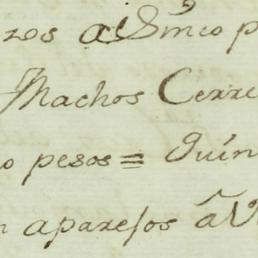 zos a Sinco p
Machos Cerre
o pesos = Quin
n aparejos â V